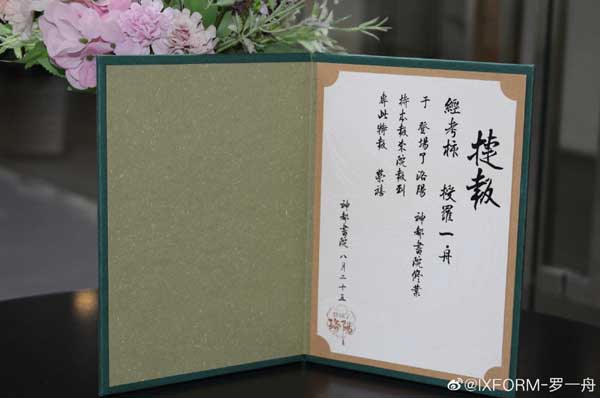 捷報
經考核 授羅一舟
于 登場了洛陽 神都書院修業
持本報來院報到
專此特報 榮禧
神都書院 八月二十五
@IXFORM-罗一舟